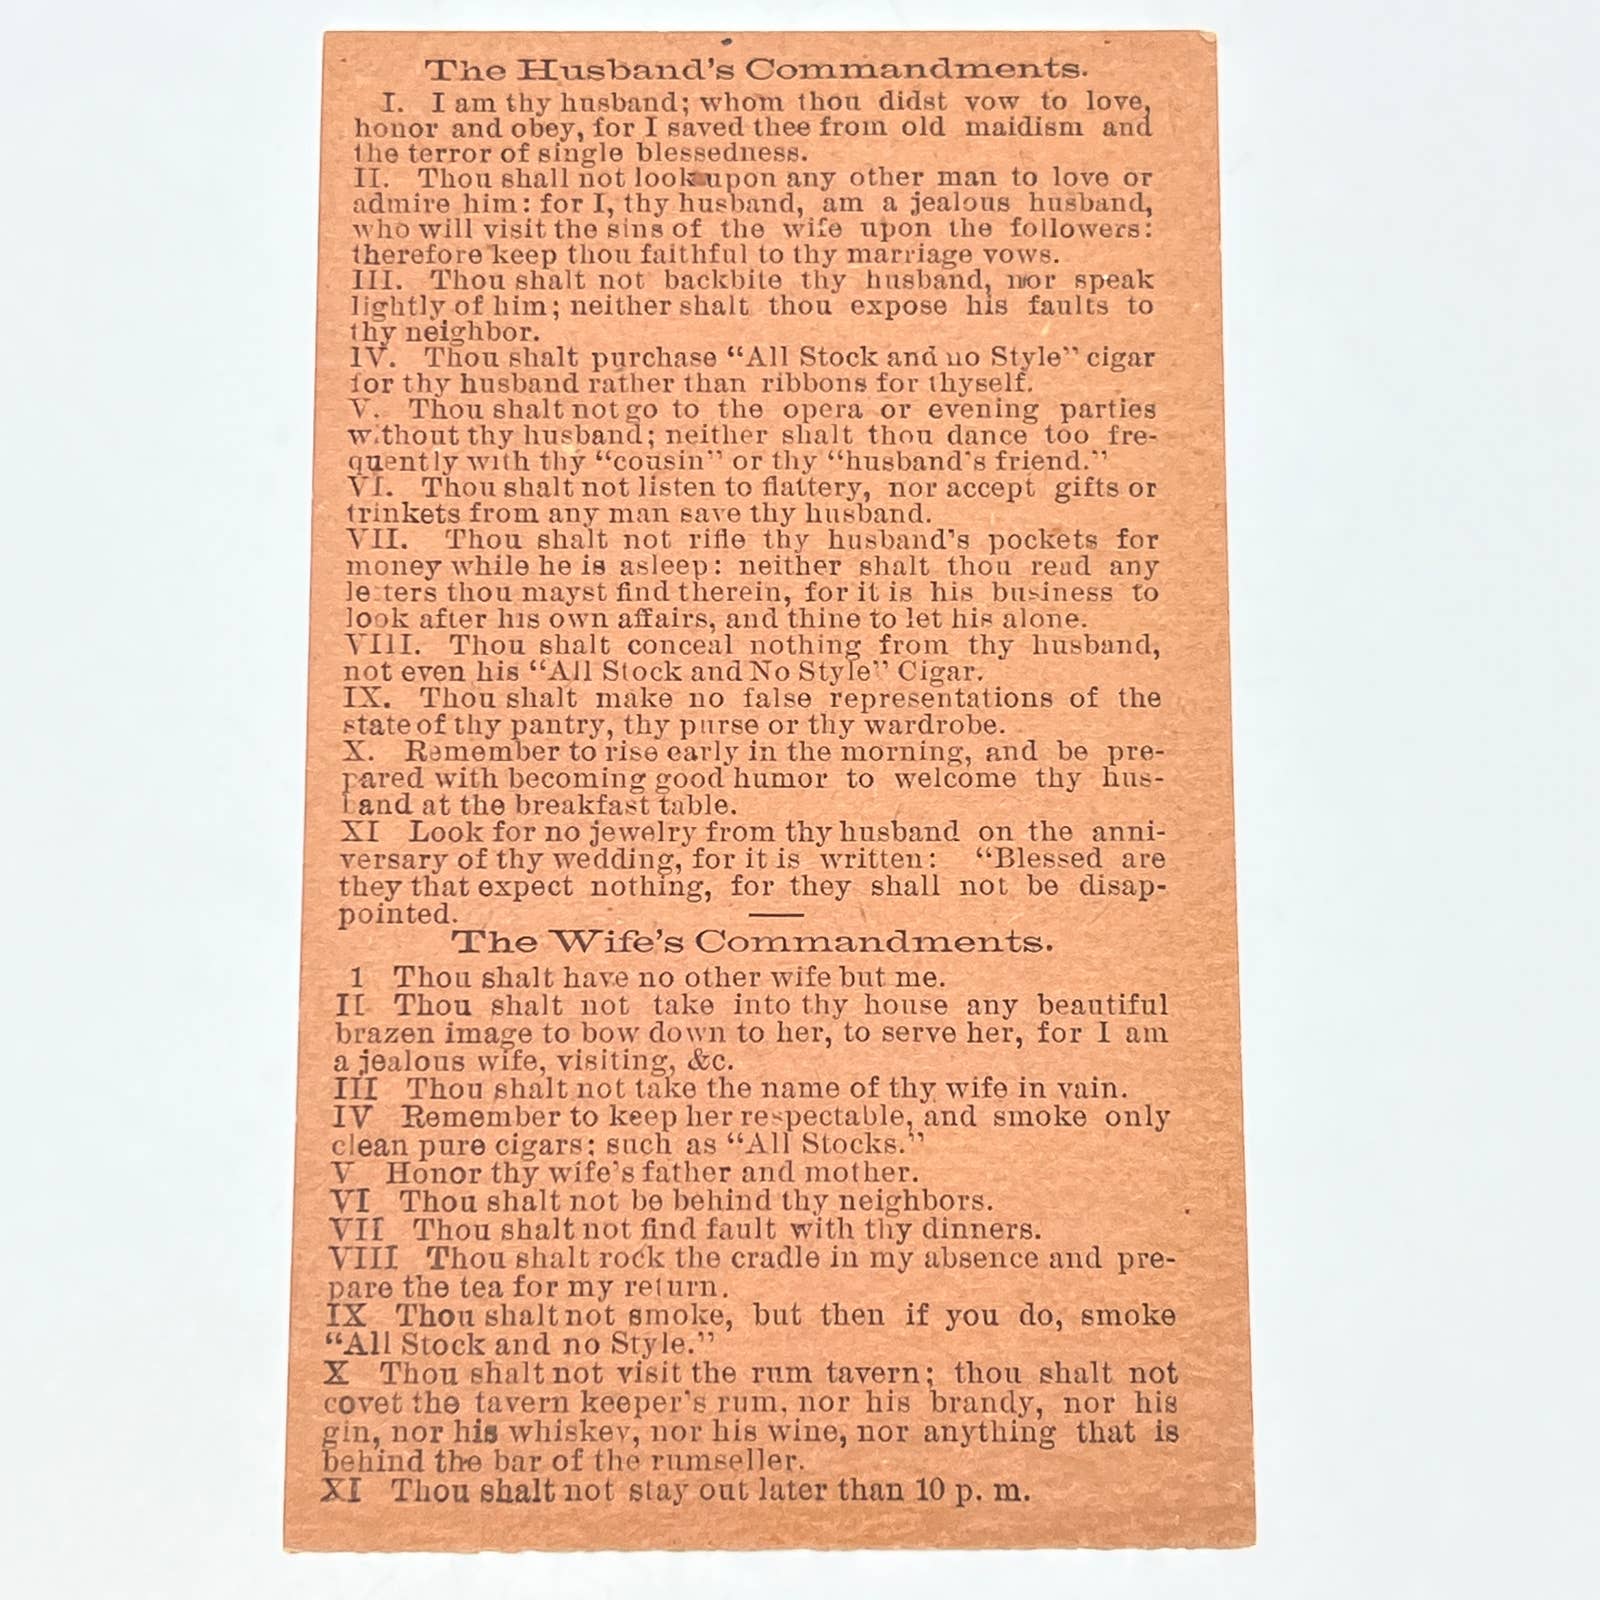 The Husband's Commandments.
I. I am thy husband; whom thou didst vow to love,
honor and obey, for I saved thee from old maidism and
the terror of single blessedness.
II. Thou shall not look upon any other man to love or
admire him: for I, thy husband, am a jealous husband,
who will visit the sins of the wife upon the followers:
therefore keep thou faithful to thy marriage vows.
III. Thou shalt not backbite thy husband, nor speak
lightly of him; neither shalt thou expose his faults to
thy neighbor.
IV. Thou shalt purchase "All Stock and no Style" cigar
for thy husband rather than ribbons for thyself.
V. Thou shalt not go to the opera or evening parties
without thy husband; neither shalt thou dance too fre-
quently with thy "cousin" or thy "husband's friend."
VI. Thou shalt not listen to flattery, nor accept gifts or
trinkets from any man save thy husband.
VII. Thou shalt not rifle thy husband's pockets for
money while he is asleep: neither shalt thou read any
letters thou mayst find therein, for it is his business to
look after his own affairs, and thine to let his alone.
VIII. Thou shalt conceal nothing from thy husband,
not even his "All Stock and No Style" Cigar.
IX. Thou shalt make no false representations of the
state of thy pantry, thy purse or thy wardrobe.
X. Remember to rise early in the morning, and be pre-
pared with becoming good humor to welcome thy hus-
band at the breakfast table.
XI Look for no jewelry from thy husband on the anni-
versary of thy wedding, for it is written: "Blessed are
they that expect nothing, for they shall not be disap-
pointed.
The Wife's Commandments.
1 Thou shalt have no other wife but me.
II Thou shalt not take into thy house any beautiful
brazen image to bow down to her, to serve her, for I am
a jealous wife, visiting, &c.
III Thou shalt not take the name of thy wife in vain.
IV Remember to keep her respectable, and smoke only
clean pure cigars; such as "All Stocks."
V Honor thy wife's father and mother.
VI Thou shalt not be behind thy neighbors.
VII Thou shalt not find fault with thy dinners.
VIII Thou shalt rock the cradle in my absence and pre-
pare the tea for my return.
IX Thou shalt not smoke, but then if you do, smoke
"All Stock and no Style."
X Thou shalt not visit the rum tavern; thou shalt not
covet the tavern keeper's rum, nor his brandy, nor his
gin, nor his whiskey, nor his wine, nor anything that is
behind the bar of the rumseller.
XI Thou shalt not stay out later than 10 p. m.